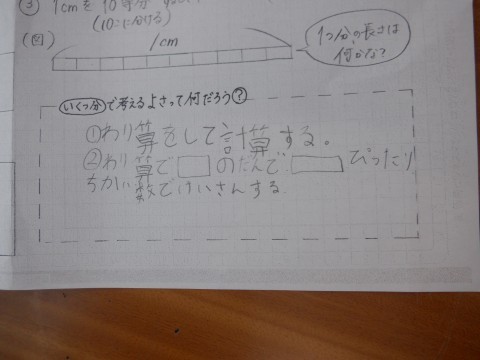 ③ 1cmを10等分
(10こに分ける)
(図)
1cm
1つ分の長さは
何かな?
いくつ分で考えるよさって何だろう?
①わり算をして計算する。
②わり算で□のだんで□ぴったり
ちかい数でけいさんする